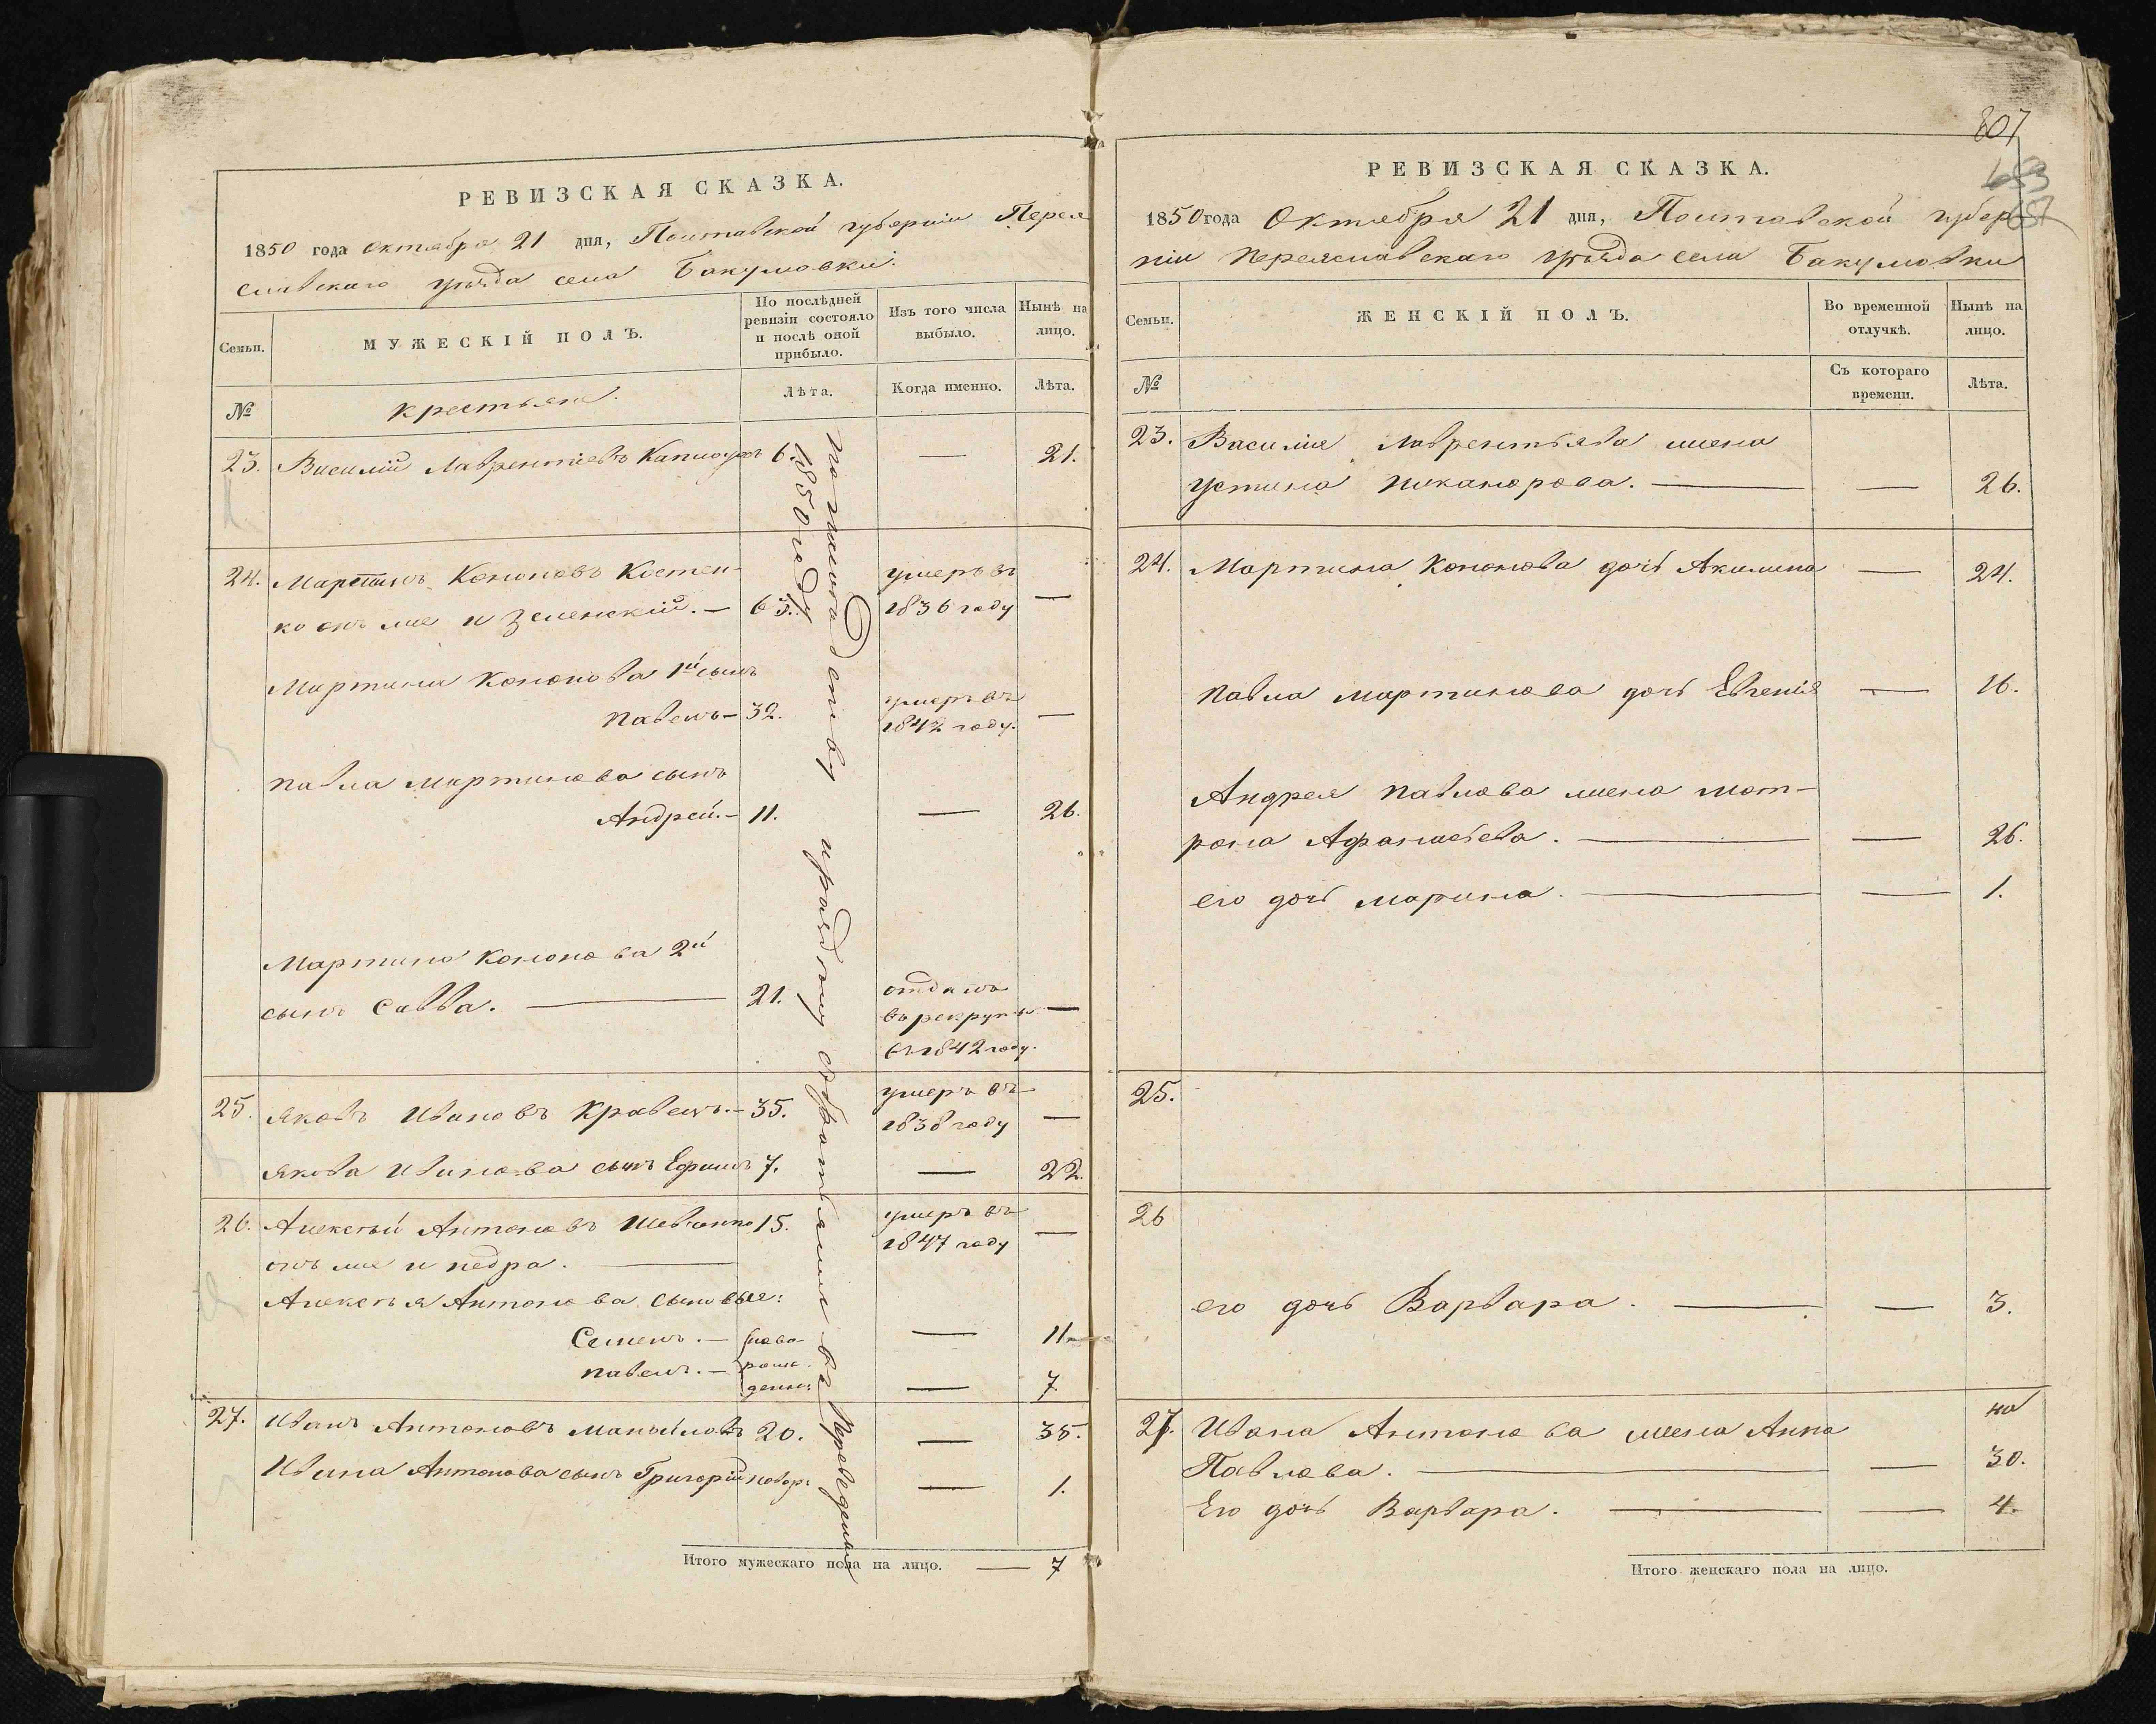 РЕВИЗСКАЯ СКАЗКА.
1850 года Октября 21 дня, Полтавской губерніи Перея
славскаго уѣзда села Бакумовки.
Семьи.
МУЖЕСКІЙ ПОЛЪ.
По послѣдней
ревизіи состояло
и послѣ оной
прибыло.
Изъ того числа
выбыло.
Нынѣ на
лицо.
№
крестьяне.
Лѣта.
Когда именно.
Лѣта.
23. Василій Лаврентіевъ 6. — 21.
24. Мартинъ Кононовъ Костен-
ко онъ же и Зеленскій. — 63. умеръ въ
1836 году —
Мартина Кононова 1й сынъ
Павелъ — 32. умеръ въ
1842 году. —
Павла Мартинова сынъ
Андрей. — 11. — 26.
Мартина Кононова 2й
сынъ Савва. — 21. отданъ
въ рекруты —
въ 1842 году.
25. Яковъ Ивановъ Кравецъ. — 35. умеръ въ
1838 году —
Якова Иванова сынъ Ефимъ 7. — 22.
26. Алексѣй Антоновъ Шевченко 15. умеръ въ
1847 году —
онъ же и Недра. —
Алексѣя Антонова сыновья:
Семенъ. — ново- — 11
Павелъ. — рож-
денные — 7.
27. Иванъ Антоновъ Манойловъ 20. — 35.
Ивана Антонова сынъ Григорій новор: — 1.
1850 году
Переведены
Итого мужескаго пола на лицо. — 7
807
653
657
РЕВИЗСКАЯ СКАЗКА.
1850 года Октября 21 дня, Полтавской губер-
ніи Переяславскаго уѣзда села Бакумовки
Семьи.
ЖЕНСКІЙ ПОЛЪ.
Во временной
отлучкѣ.
Нынѣ на
лицо.
№
Съ котораго
времени.
Лѣта.
23. Василія Лаврентьева жена
Устина Никанорова. — — 26.
24. Мартина Кононова дочь Акилина — 24.
Павла Мартинова дочь Евгенія — 16.
Андрея Павлова жена Мот-
рона Афанасьева. — — 26.
его дочь Марина. — — 1.
25.
26
его дочь Варвара. — — 3.
27. Ивана Антонова жена Анна
Павлова. — — 30.
Его дочь Варвара. — — 4.
Итого женскаго пола на лицо.